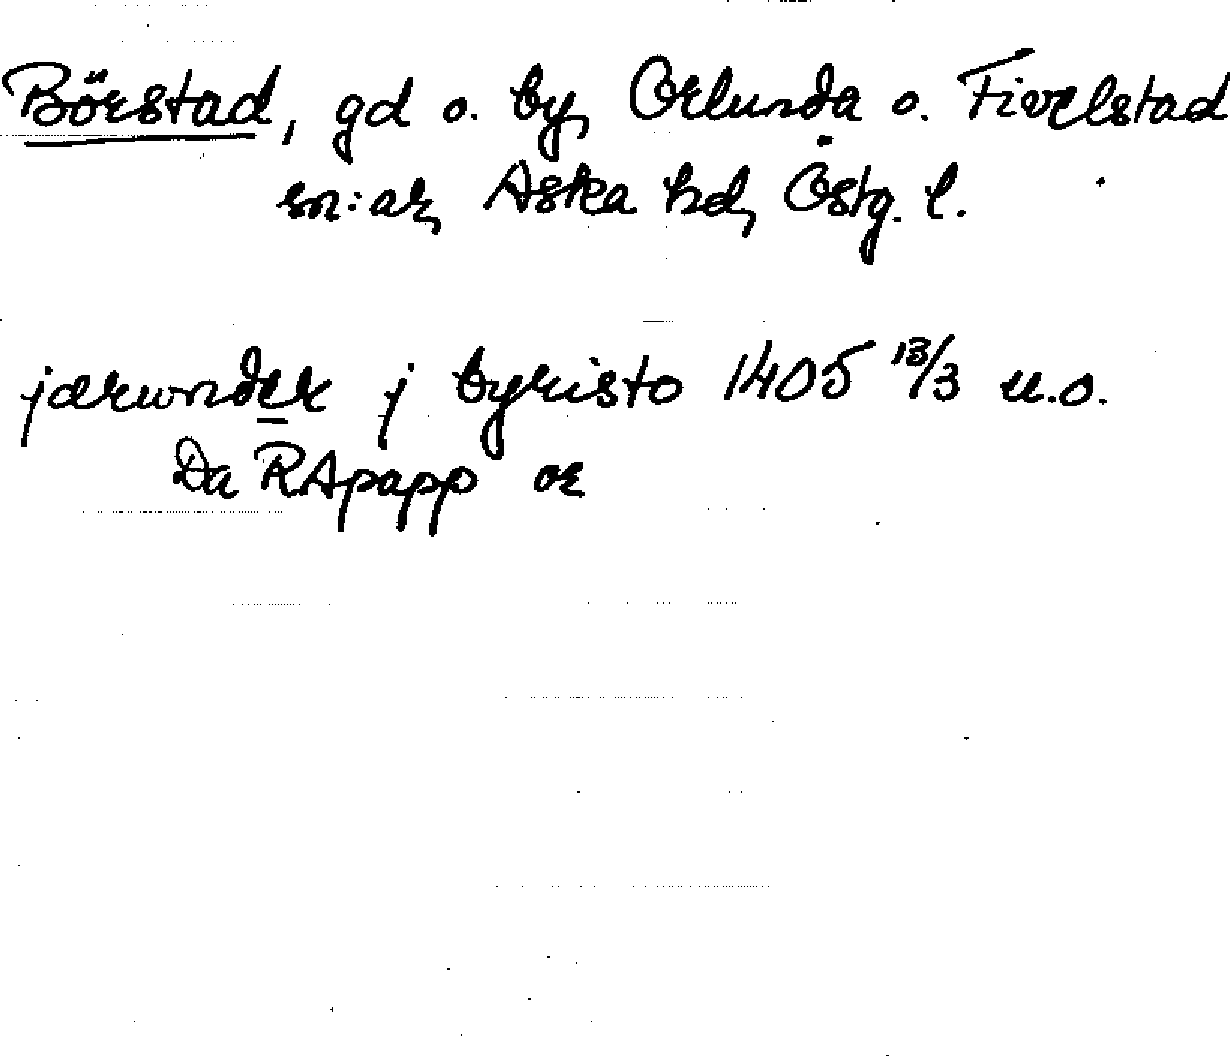 Börstad, gd o. by, Orlunda o. Fivelstad
sn:ar, Aska hd, Östg. l.
jærwnder j byristo 1405 13/3 u.o.
Da RApapp or